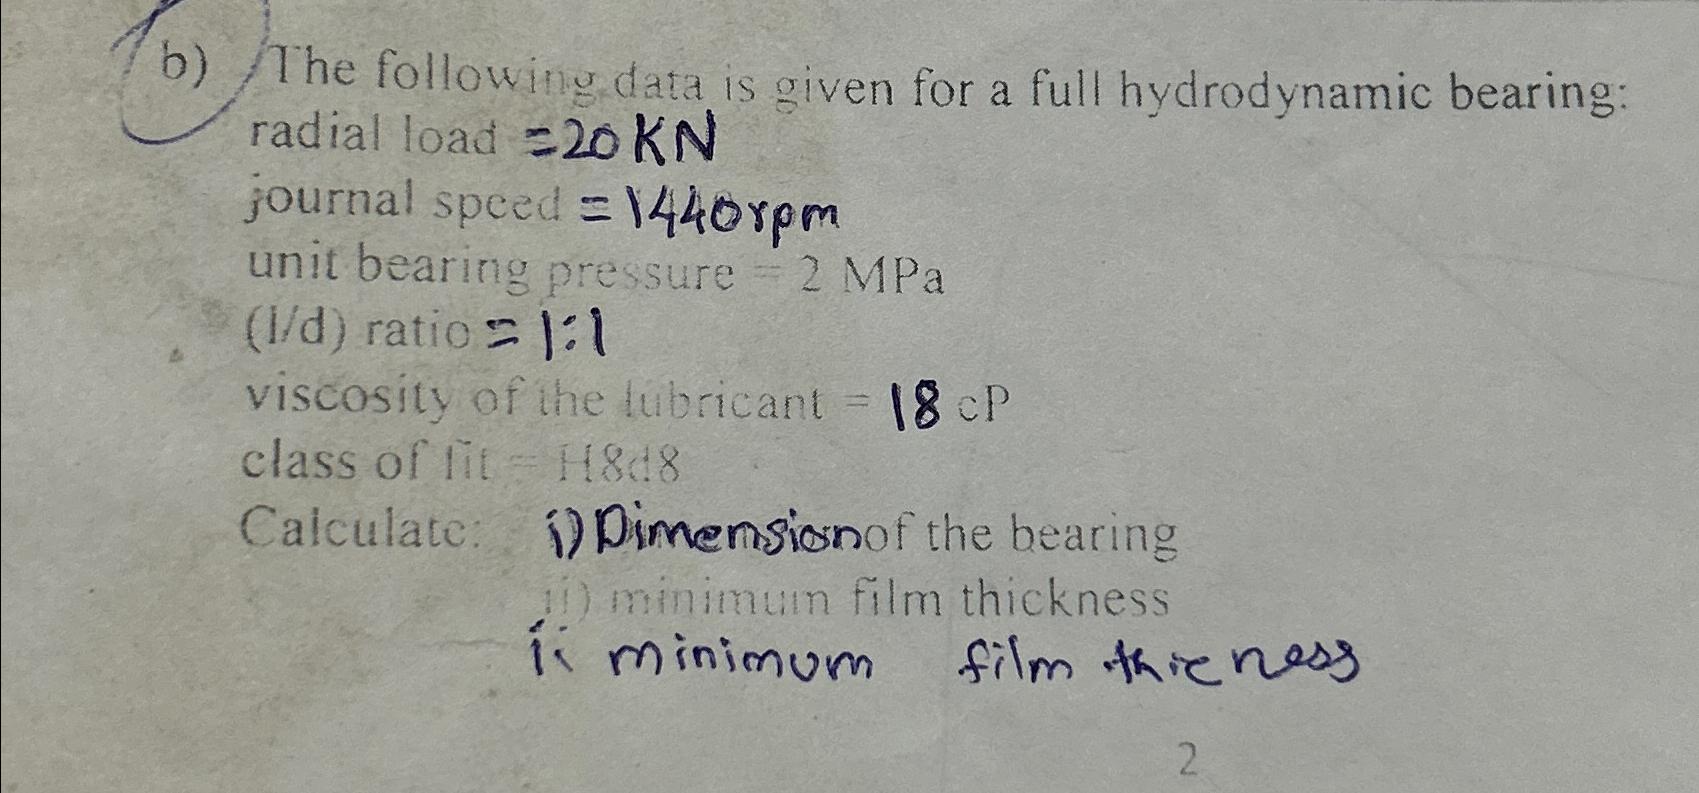 b) The following data is given for a full hydrodynamic bearing:
radial load = 20 KN
journal speed = 1440 rpm
unit bearing pressure = 2 MPa
(l/d) ratio = 1:1
viscosity of the lubricant = 18 cP
class of fit = H8d8
Calculate: i) Dimension of the bearing
ii) minimum film thickness
ii minimum film thicness
2